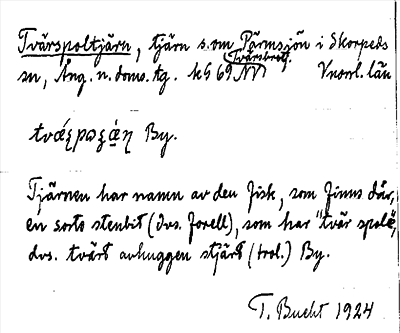 Tvärspoltjärn, tjärn s.om Pärmsjön i Skorpeds
sn, Ång. n. doms. tg. kG 69 NV Vnorrl. län
By.
Tjärnen har namn av den fisk, som finns där,
en sorts stenbit (dvs. forell), som har "tvär spole",
dvs. tvärt avhuggen stjärt (trol.) By.
T. Bucht 1924